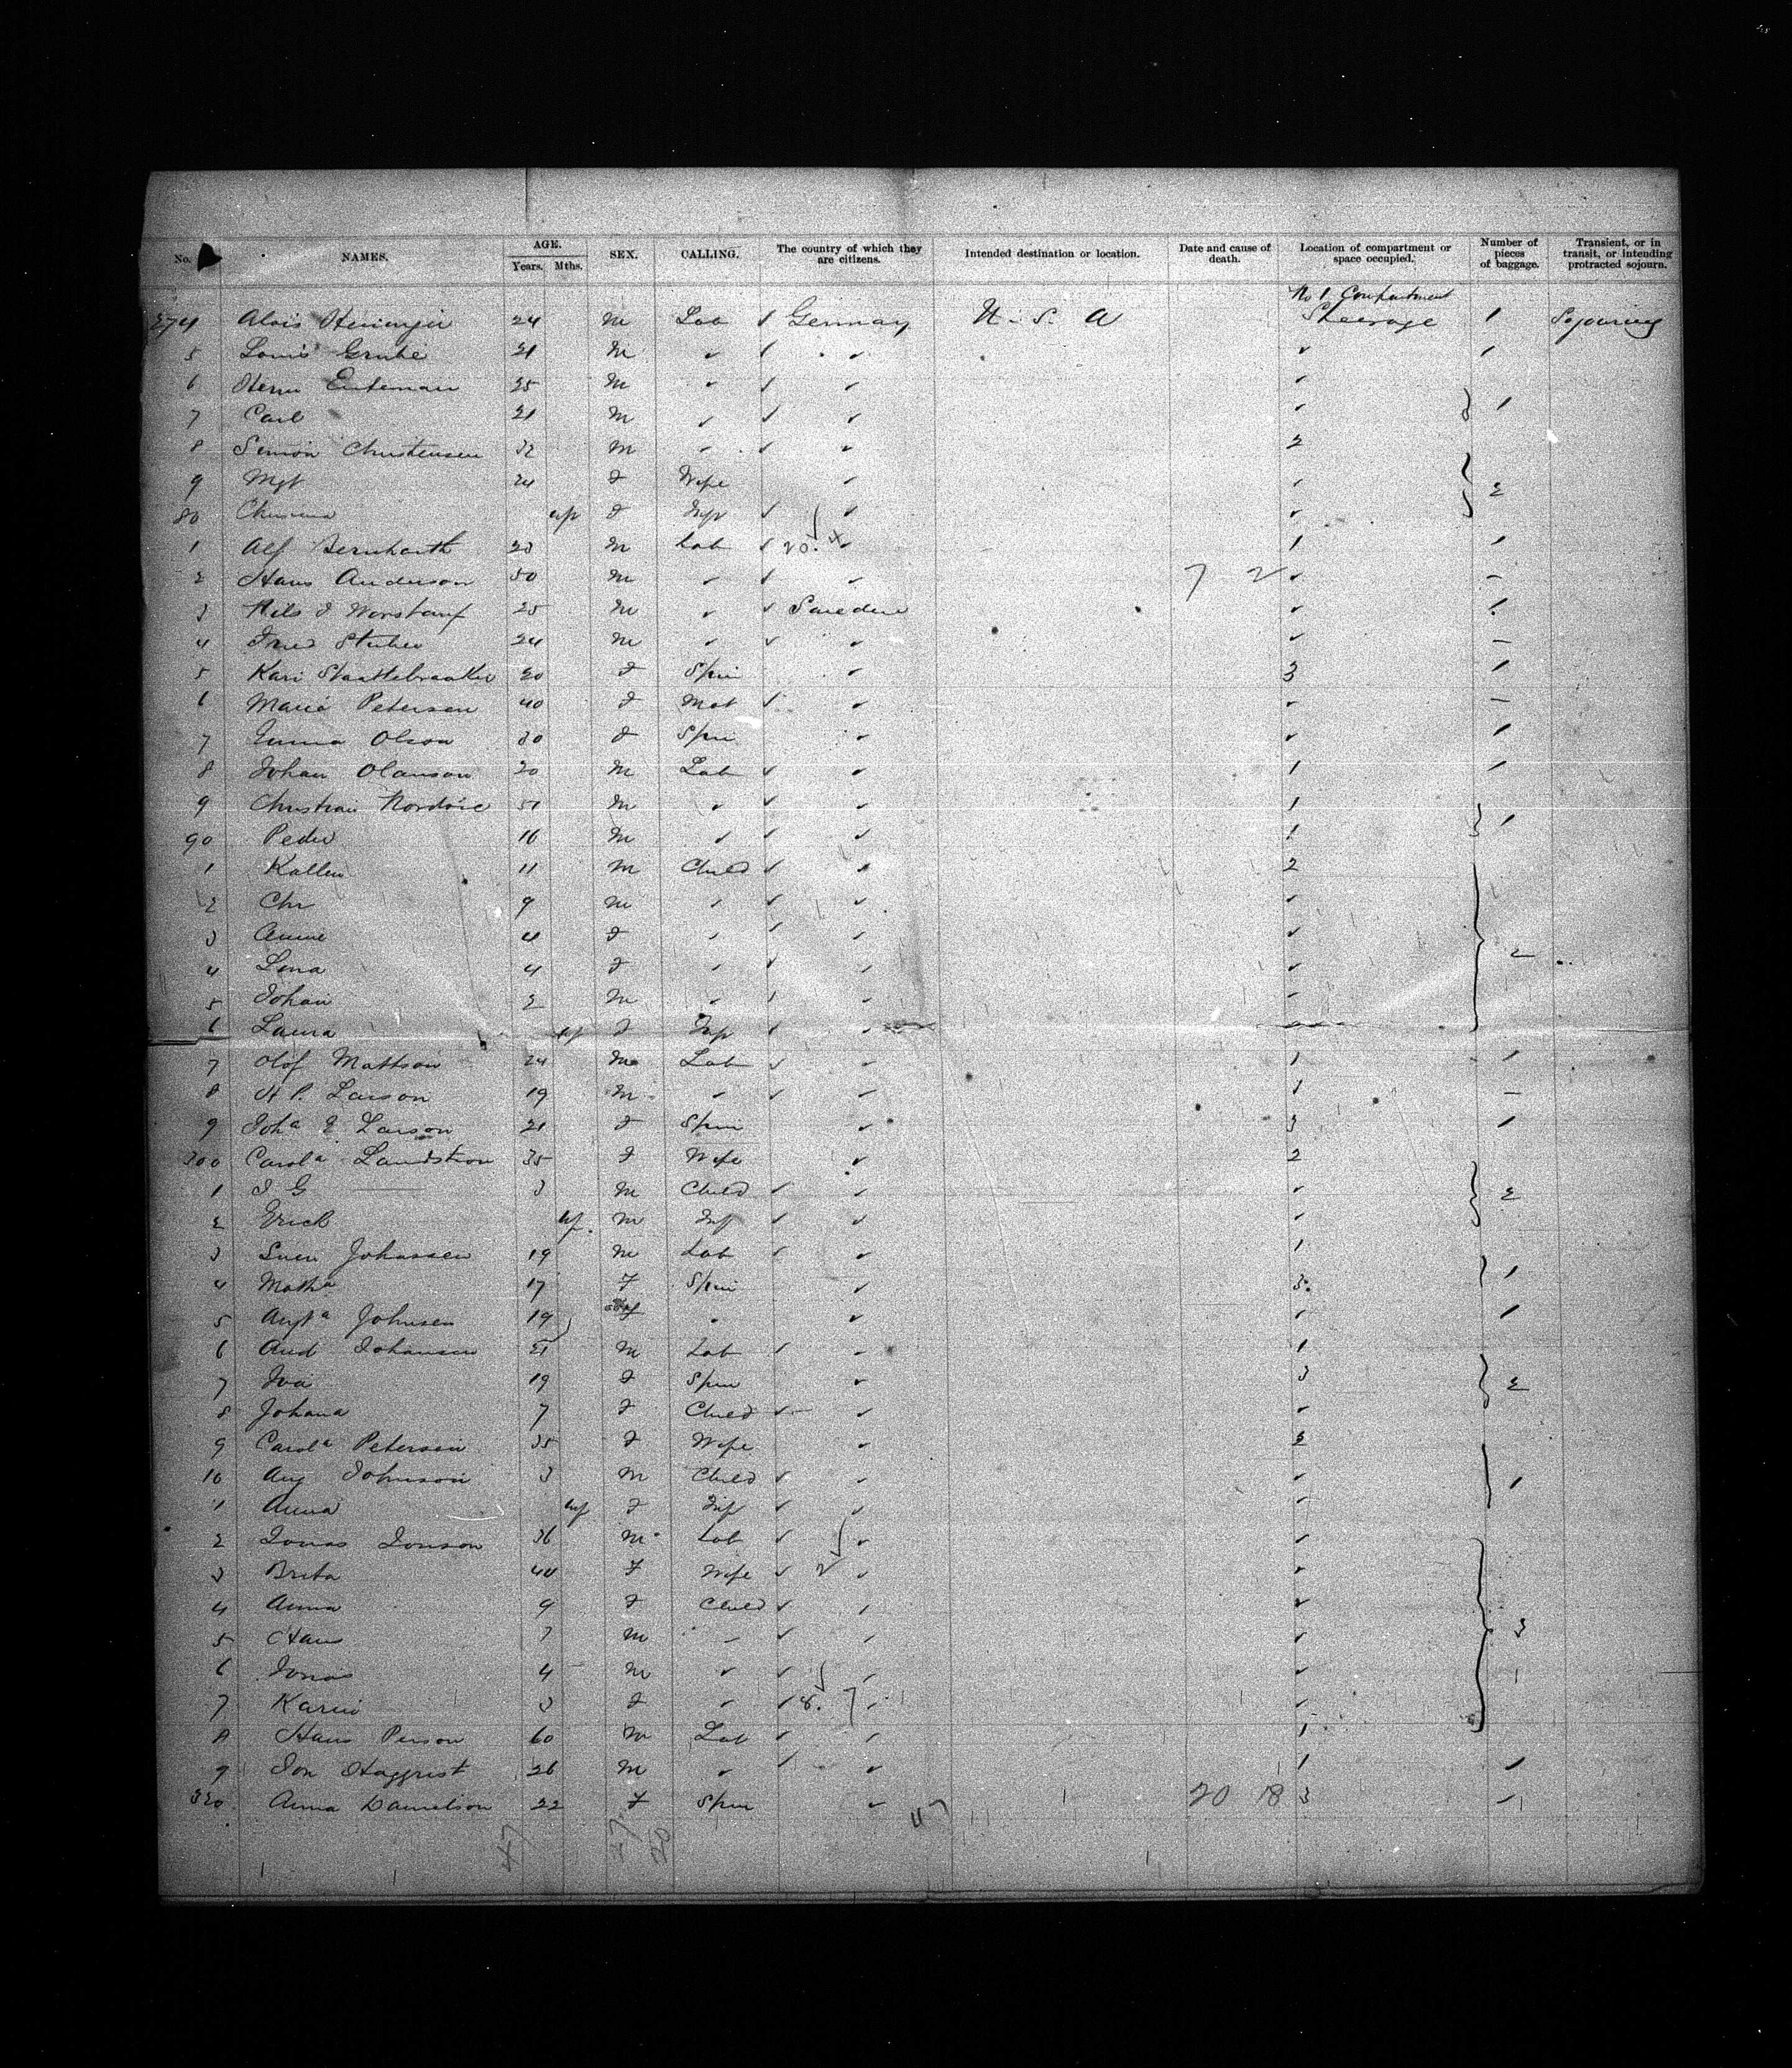 No. NAMES. AGE. Years. Mths. SEX. CALLING. The country of which they are citizens. Intended destination or location. Date and cause of death. Location of compartment or space occupied. Number of pieces of baggage. Transient, or in transit, or intending protracted sojourn.
No 1 Compartment
274 Alois 24 m Lab ✓ Germany U. S. A Steerage 1 Sojouring
5 Louis Grube 21 m ✓ ✓ ✓ ✓ 1
6 Enteman 25 m ✓ ✓ ✓ ✓
7 Carl 21 m ✓ ✓ ✓ ✓ 1
8 Simon Christensen 32 m ✓ ✓ ✓ 2
9 Mgt 24 F Wife ✓ ✓ 2
80 F Inf ✓ ✓ ✓
1 Alf Bernharth m Lab ✓ 20. 4 ✓ 1 1
2 Hans Anderson 50 m ✓ ✓ ✓ 7 2 ✓ –
3 Nils 25 m ✓ ✓ Sweden ✓ 1
4 24 m ✓ ✓ ✓ ✓ –
5 Kari 20 F Spin ✓ 3 1
6 Maria Petersen 40 F ✓ ✓ ✓ –
7 Emma Olson 30 F Spin ✓ ✓ 1
8 Johan Olanson 20 m Lab ✓ ✓ 1 1
9 Christian 51 m ✓ ✓ ✓ 1 1
90 Peder 16 m ✓ ✓ ✓ 1
1 11 m Child ✓ ✓ 2
2 Chr 9 m ✓ ✓ ✓ ✓
3 Anne 4 F ✓ ✓ ✓ ✓ 2
4 Lena 4 F ✓ ✓ ✓ ✓
5 Johan 2 m ✓ ✓ ✓ ✓
6 Laura F Inf ✓ ✓ ✓
7 Olof Mattson 24 m Lab ✓ ✓ 1 1
8 H P. Larson 19 m ✓ ✓ ✓ 1 –
9 Joha E Larson 21 F Spin ✓ 3 1
300 Carola Landstrom 35 F Wife ✓ 2
1 J G 3 m Child ✓ ✓ ✓ 2
2 Erick Inf. m Inf ✓ ✓ ✓
3 Sven Johanssen 19 m Lab ✓ ✓ 1
4 Matha 17 F Spin ✓ 3. 1
5 Augta Johnsen 19 F ✓ ✓ ✓ 1
6 And Johansen 21 m Lab ✓ ✓ 1
7 19 F Spin ✓ 3 2
8 Johana 7 F Child ✓ ✓ ✓
9 Carola Petersen 35 F Wife ✓ 2
10 Aug Johnson 3 m Child ✓ ✓ ✓ 1
1 Anna Inf F Inf ✓ ✓ ✓
2 Jonas Jonson 36 m Lab ✓ ✓ ✓
3 Brita 44 F Wife ✓ 2 ✓ ✓
4 Anna 9 F Child ✓ ✓ ✓
5 Hans 7 m ✓ ✓ ✓ ✓ 3
6 Jonas 4 m ✓ ✓ ✓ ✓
7 Karin 3 F ✓ ✓ 8. ✓ ✓
8 Hans Person 60 m Lab ✓ ✓ 1
9 Jon 26 m ✓ ✓ ✓ 1 1
320 Anna Danielson 22 F Spin ✓ 20 18 3 1
47 27 20 47